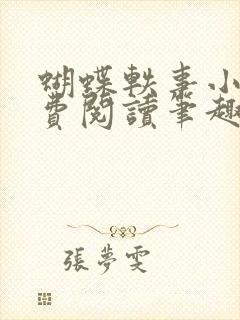 蝴蝶軼事小
費閱讀筆趣
張夢雯